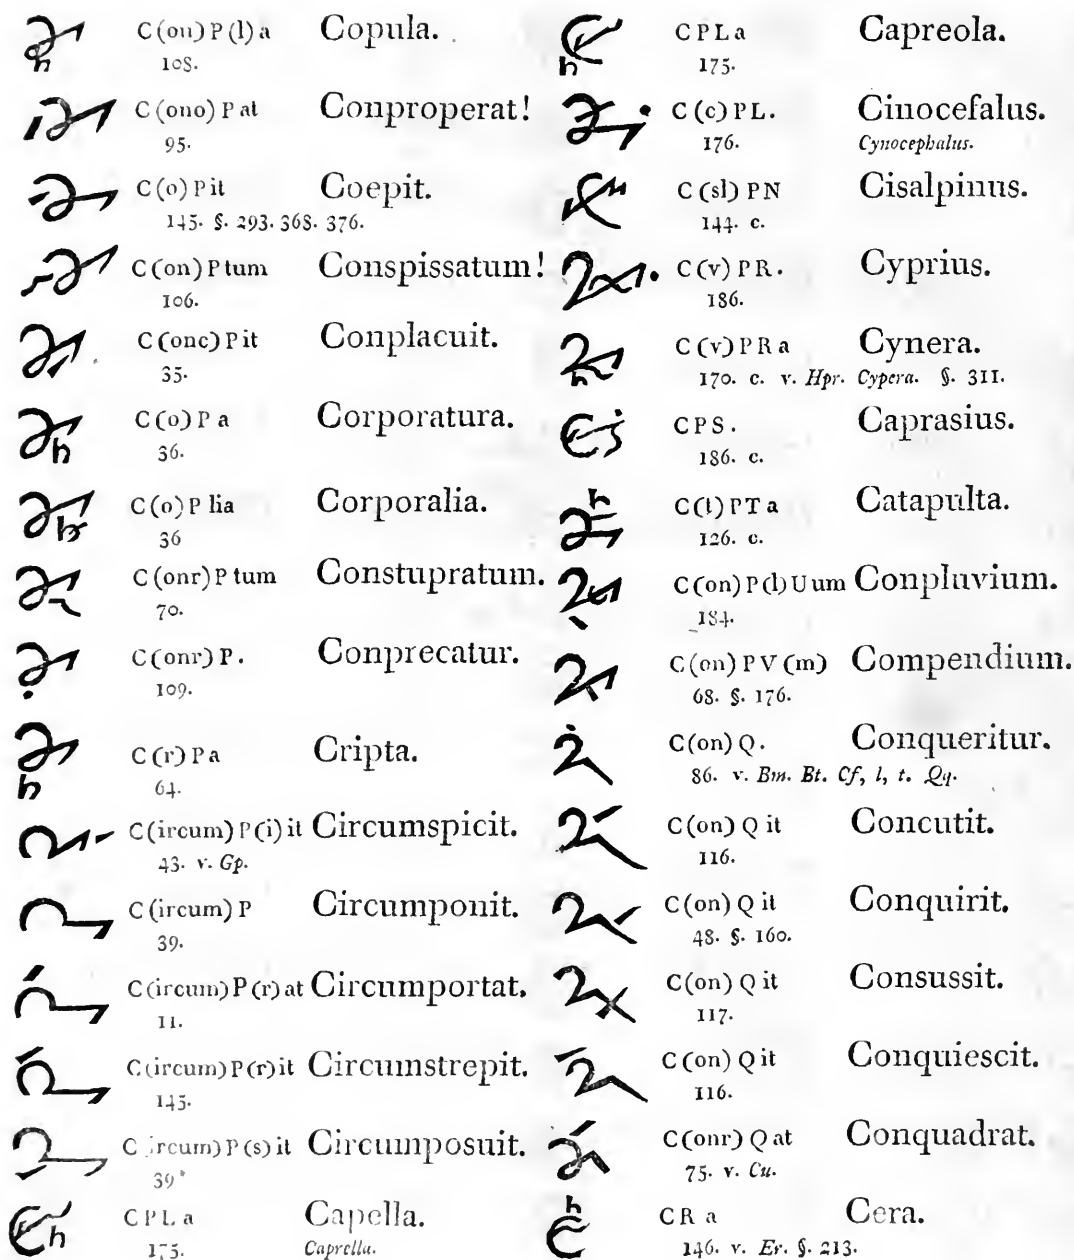 C(on)P(l)a Copula.
108.
C(ono)Pat Conproperat!
95.
C(o)Pit Coepit.
145. §. 293. 368. 376.
C(on)Ptum Conspissatum!
106.
C(onc)Pit Conplacuit.
35.
C(o)Pa Corporatura.
36.
C(o)Plia Corporalia.
36
C(onr)Ptum Constupratum.
70.
C(onr)P. Conprecatur.
109.
C(r)Pa Cripta.
64.
C(ircum)P(i)it Circumspicit.
43. v. Gp.
C(ircum)P Circumponit.
39.
C(ircum)P(r)at Circumportat.
11.
C(ircum)P(r)it Circumstrepit.
145.
C(ircum)P(s)it Circumposuit.
39
CPLa Capella.
175. Caprella.
CPLa Capreola.
175.
C(c)PL. Cinocefalus.
176. Cynocephalus.
C(sl)PN Cisalpinus.
144. c.
C(v)PR. Cyprius.
186.
C(v)PRa Cynera.
170. c. v. Hpr. Cypera. §. 311.
CPS. Caprasius.
186. c.
C(t)PTa Catapulta.
126. c.
C(on)P(l)Uum Conpluvium.
184.
C(on)PV(m) Compendium.
68. §. 176.
C(on)Q. Conqueritur.
86. v. Bm. Bt. Cf, l, t. Qq.
C(on)Qit Concutit.
116.
C(on)Qit Conquirit.
48. §. 160.
C(on)Qit Consussit.
117.
C(on)Qit Conquiescit.
116.
C(onr)Qat Conquadrat.
75. v. Cu.
CRa Cera.
146. v. Er. §. 213.